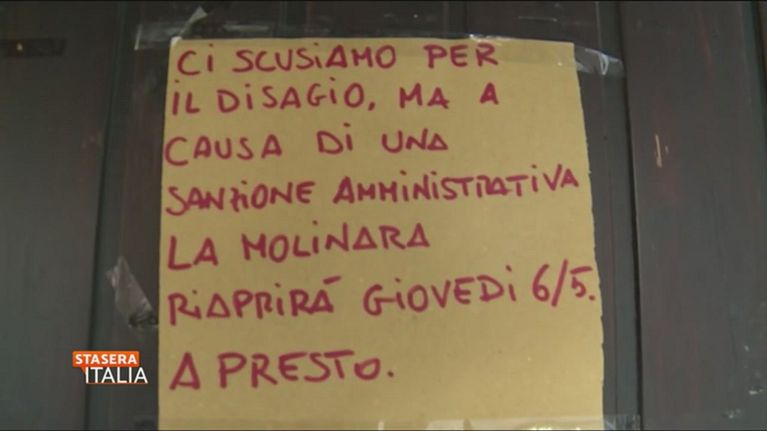 CI SCUSIAMO PER
IL DISAGIO, MA A
CAUSA DI UNA
SANZIONE AMMINISTRATIVA
LA MOLINARA
RIAPRIRÁ GIOVEDI 6/5.
A PRESTO.
STASERA
ITALIA